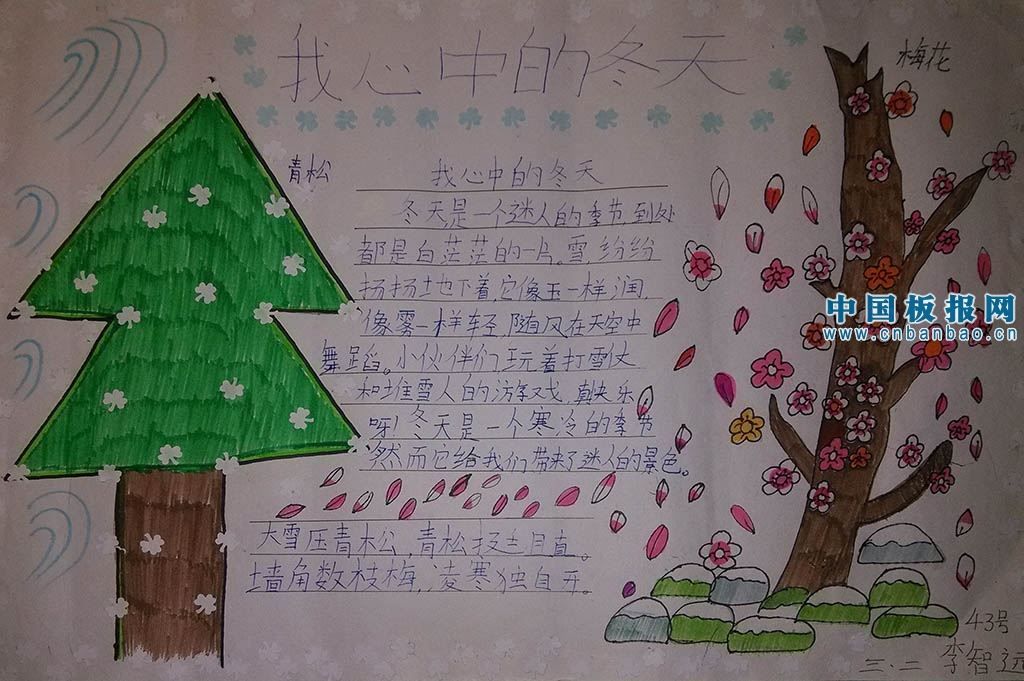 我心中的冬天
梅花
青松
我心中的冬天
冬天是一个迷人的季节到处
都是白茫茫的一片。雪,纷纷
扬扬地下着,它像玉一样润,
像雾一样轻,随风在天空中
舞蹈。小伙伴们玩着打雪仗
和堆雪人的游戏,真快乐
呀!冬天是一个寒冷的季节
然而它给我们带来了迷人的景色。
大雪压青松,青松挺且直。
墙角数枝梅,凌寒独自开。
中国板报网
www.cnbanbao.cn
43号
三.二 李智远